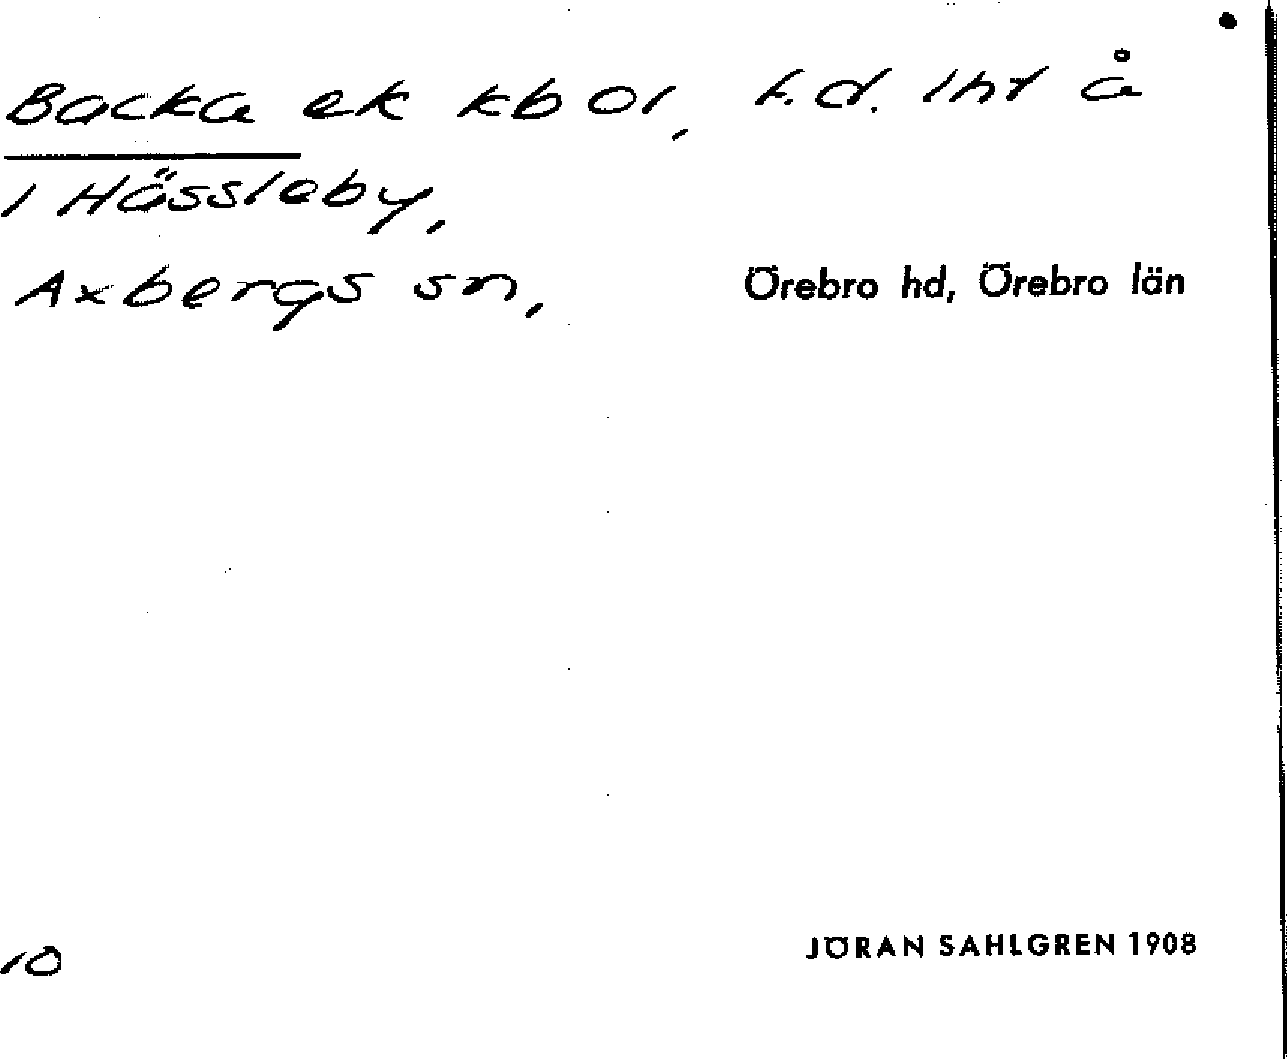 Backa ek kb or, f.d. lht å
i Hässleby,
Axbergs sn, Örebro hd, Örebro län
10 JÖRAN SAHLGREN 1908